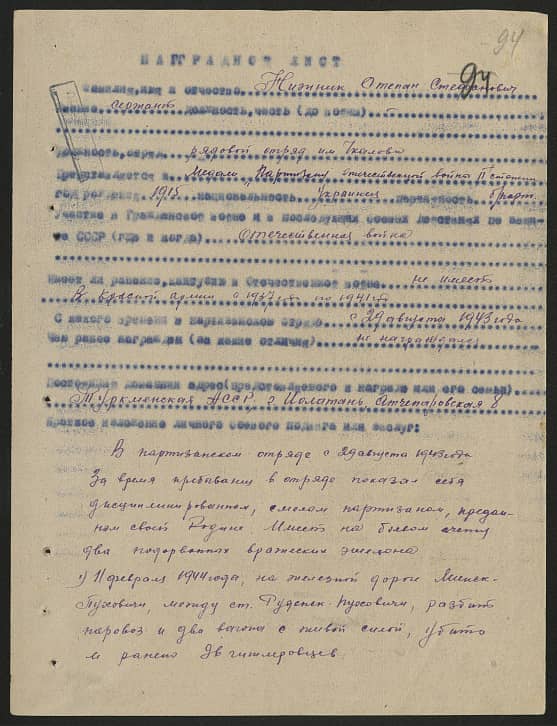 94
94
НАГРАДНОЙ ЛИСТ
Фамилия, имя и отчество Жижник Степан Степанович
Звание сержант должность, часть (до войны) -
Должность, отряд рядовой отряд им Чкалова
Представляется к медали "Партизану отечественной войны II степени
год рождения 1915 национальность Украинец партийность б/парт.
Участие в Гражданской войне и в последующих боевых действиях по защи-
те СССР (где и когда) Отечественная война
Имеет ли ранение, контузию в Отечественной войне не имеет
В Красной армии с 1937 г. по 1941 г.
С какого времени в партизанском отряде с 29 августа 1943 года
Чем ранее награжден (за какие отличия) не награждался
Постоянный домашний адрес (представляемого к награде или его семьи)
Туркменская АССР, г Иолатань,
Краткое изложение личного боевого подвига или заслуг:
В партизанском отряде с 29 августа 1943 года
За время пребывания в отряде показал себя
дисциплинированном, смелом партизаном, предан-
ном своей Родине Имеет на боевом счету
два подорванных вражеских эшелона
1) 11 февраля 1944 года, на железной дороге Минск-
Пуховичи, между ст. Руденск-Пуховичи, разбит
паровоз и два вагона с живой силой, убито
и ранено гитлеровцев.